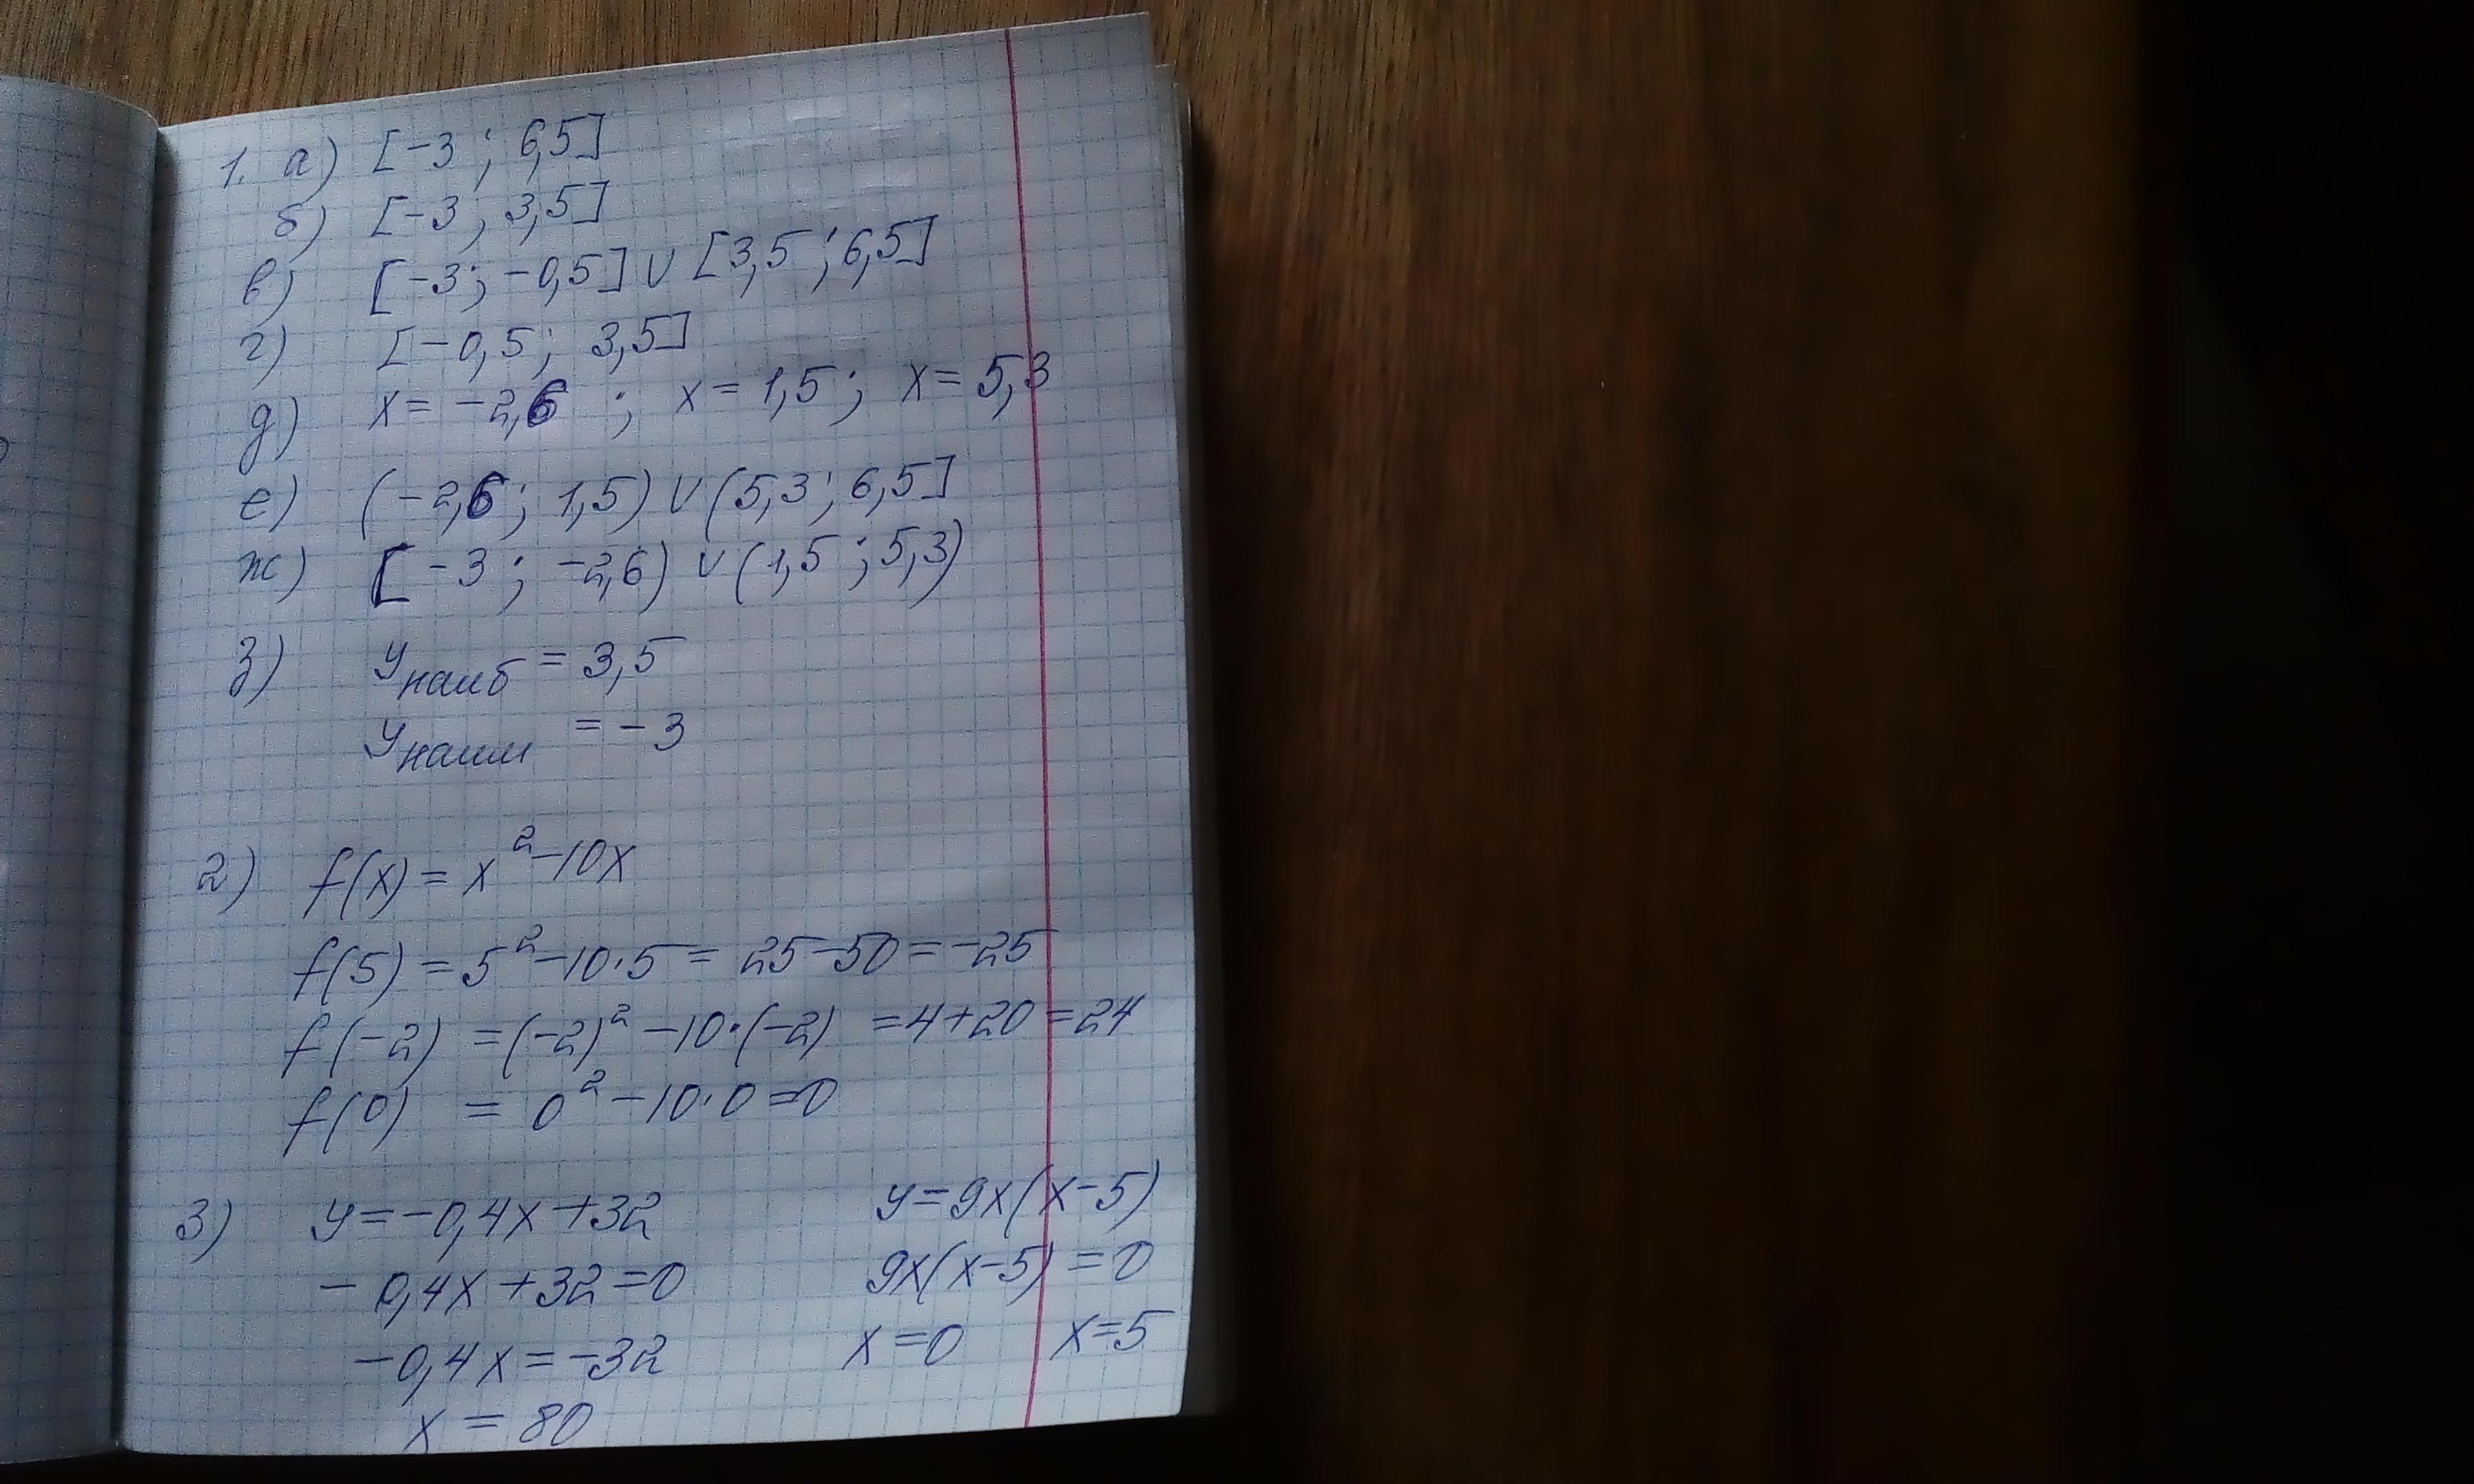 1. а) [-3 ; 6,5]
б) [-3 ; 3,5]
в) [-3 ; -0,5] ∪ [3,5 ; 6,5]
г) [-0,5 ; 3,5]
д) x = -2,6 ; x = 1,5 ; x = 5,3
е) (-2,6 ; 1,5) ∪ (5,3 ; 6,5]
ж) [-3 ; -2,6) ∪ (1,5 ; 5,3)
з) y наиб = 3,5
y наим = -3
2) f(x) = x² - 10x
f(5) = 5² - 10·5 = 25 - 50 = -25
f(-2) = (-2)² - 10·(-2) = 4 + 20 = 24
f(0) = 0² - 10·0 = 0
3) y = -0,4x + 32 y = 9x(x-5)
-0,4x + 32 = 0 9x(x-5) = 0
-0,4x = -32 x = 0 x = 5
x = 80